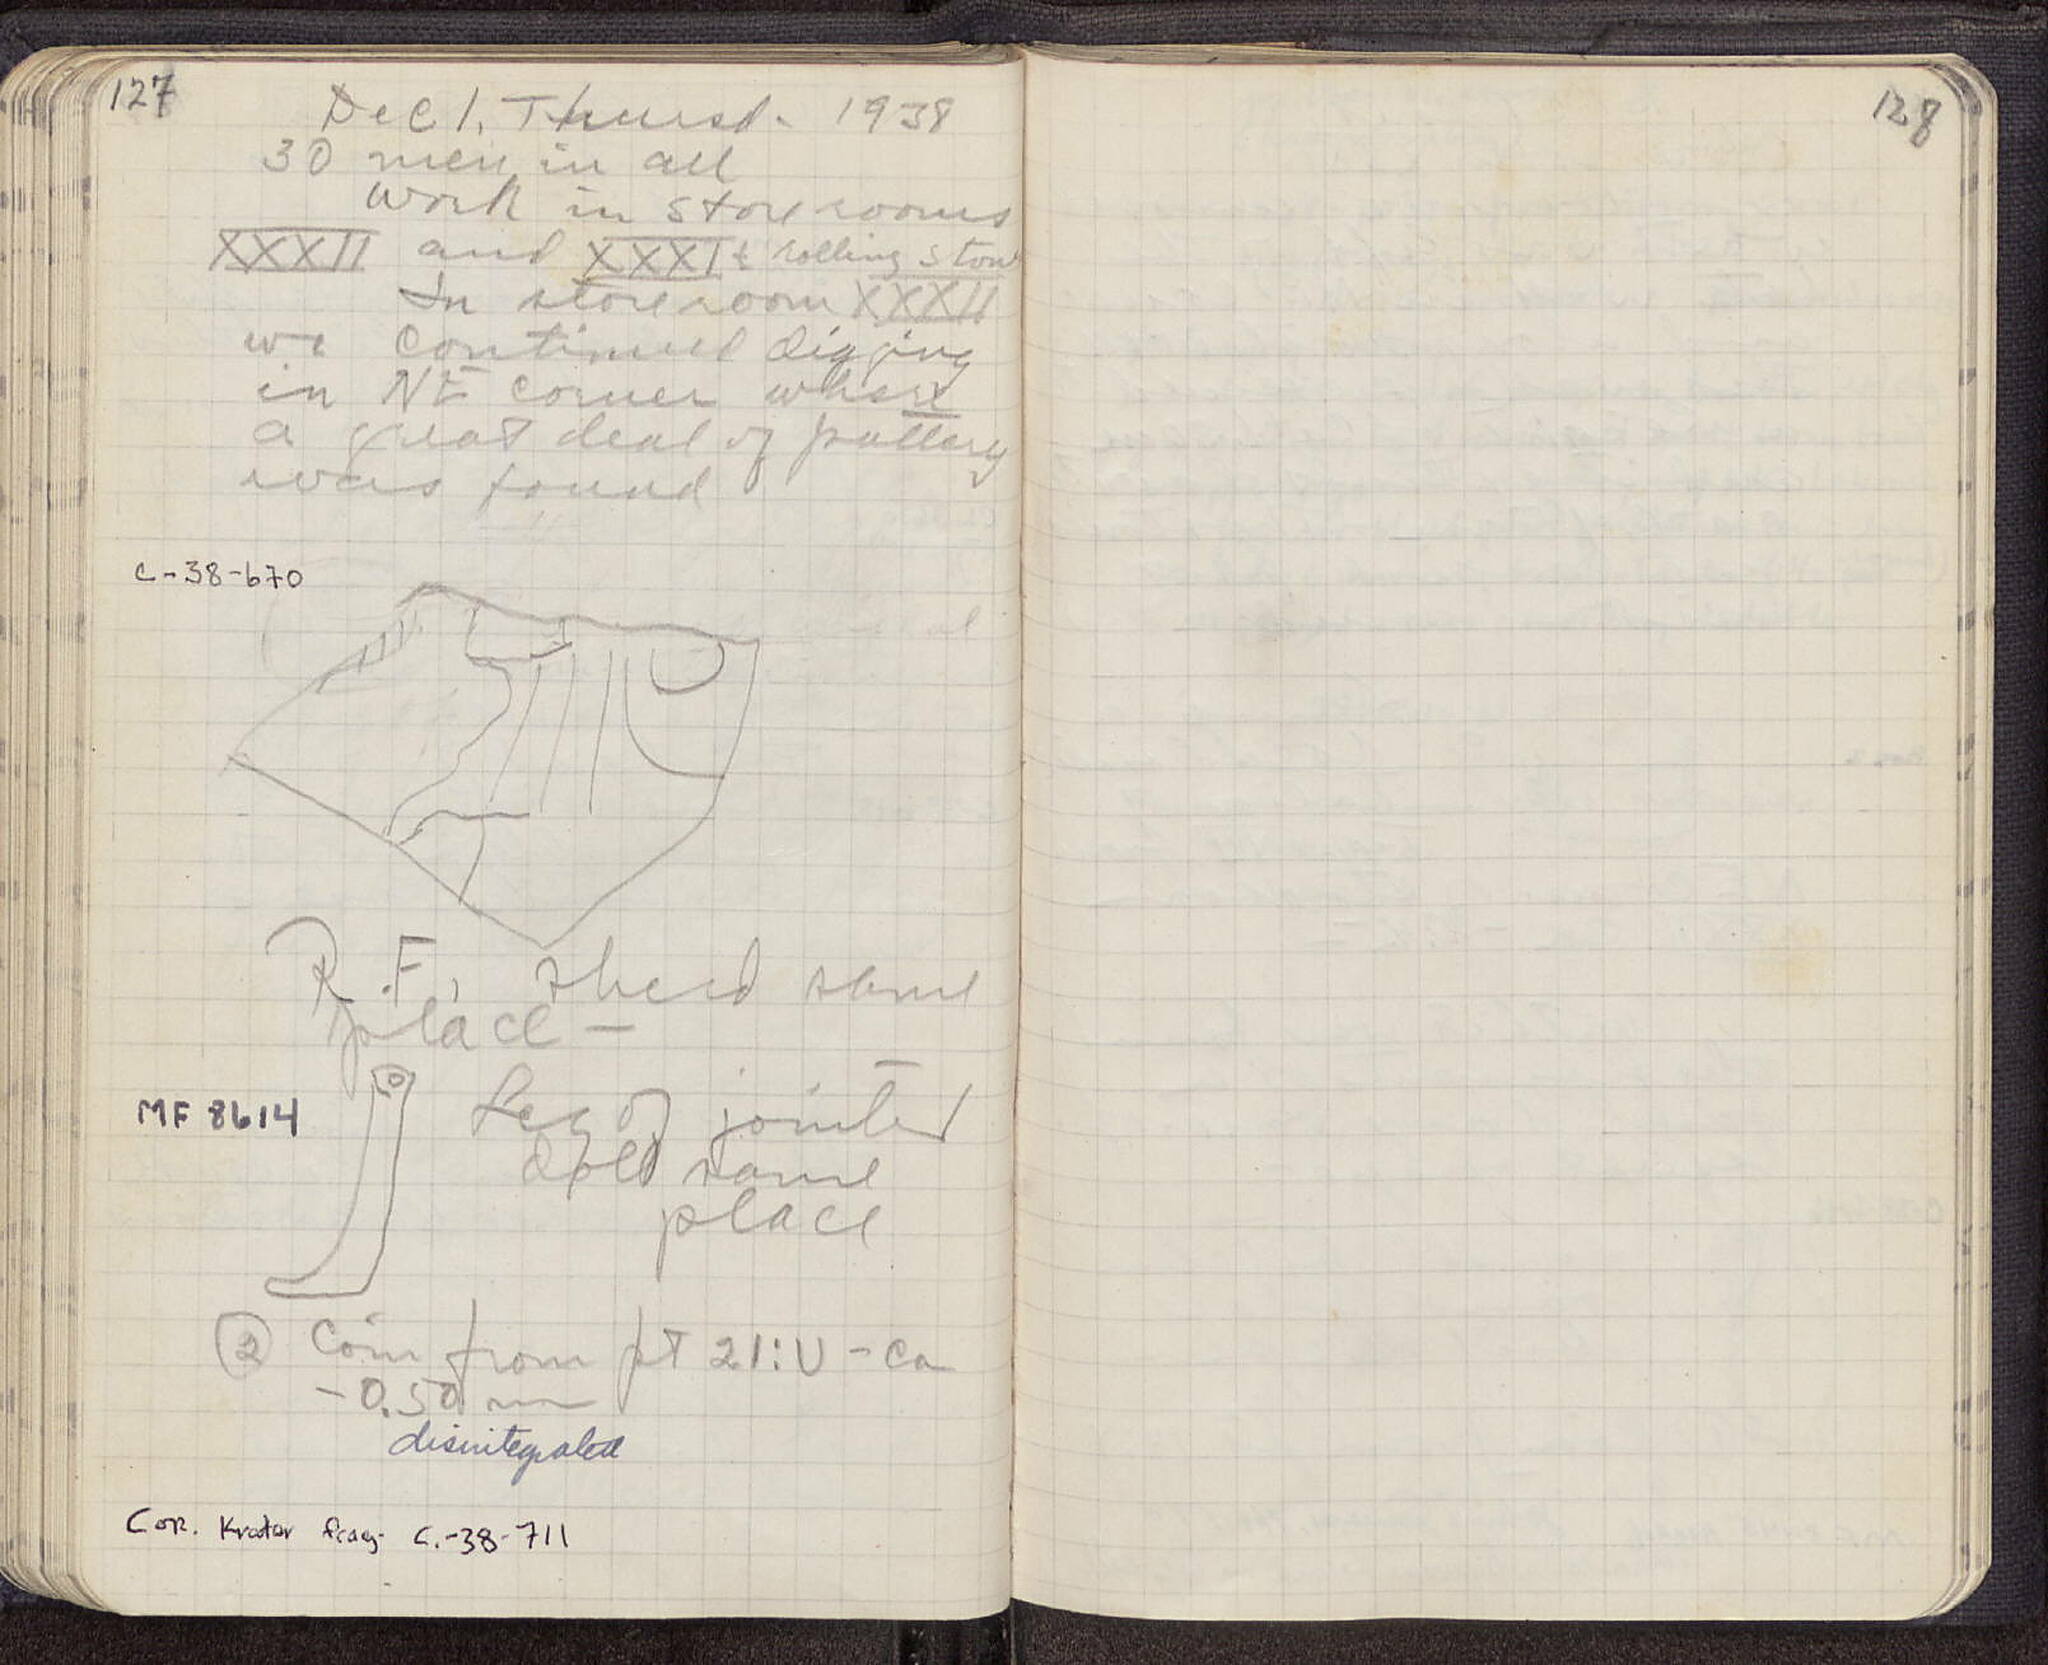 127
Dec 1. Thursd. 1938
30 men in all
Work in storerooms
XXXII and XXXI & rolling stow
In storeroom XXXII
we continued digging
in NE corner where
a great deal of pottery
was found
C-38-670
R.F. sherd same
place —
MF 8614
Leg of jointed
doll same
place
② Coin from pt 21:U - ca
-0.50 m
disintegrated
Cor. Krater frag. C.-38-711
128